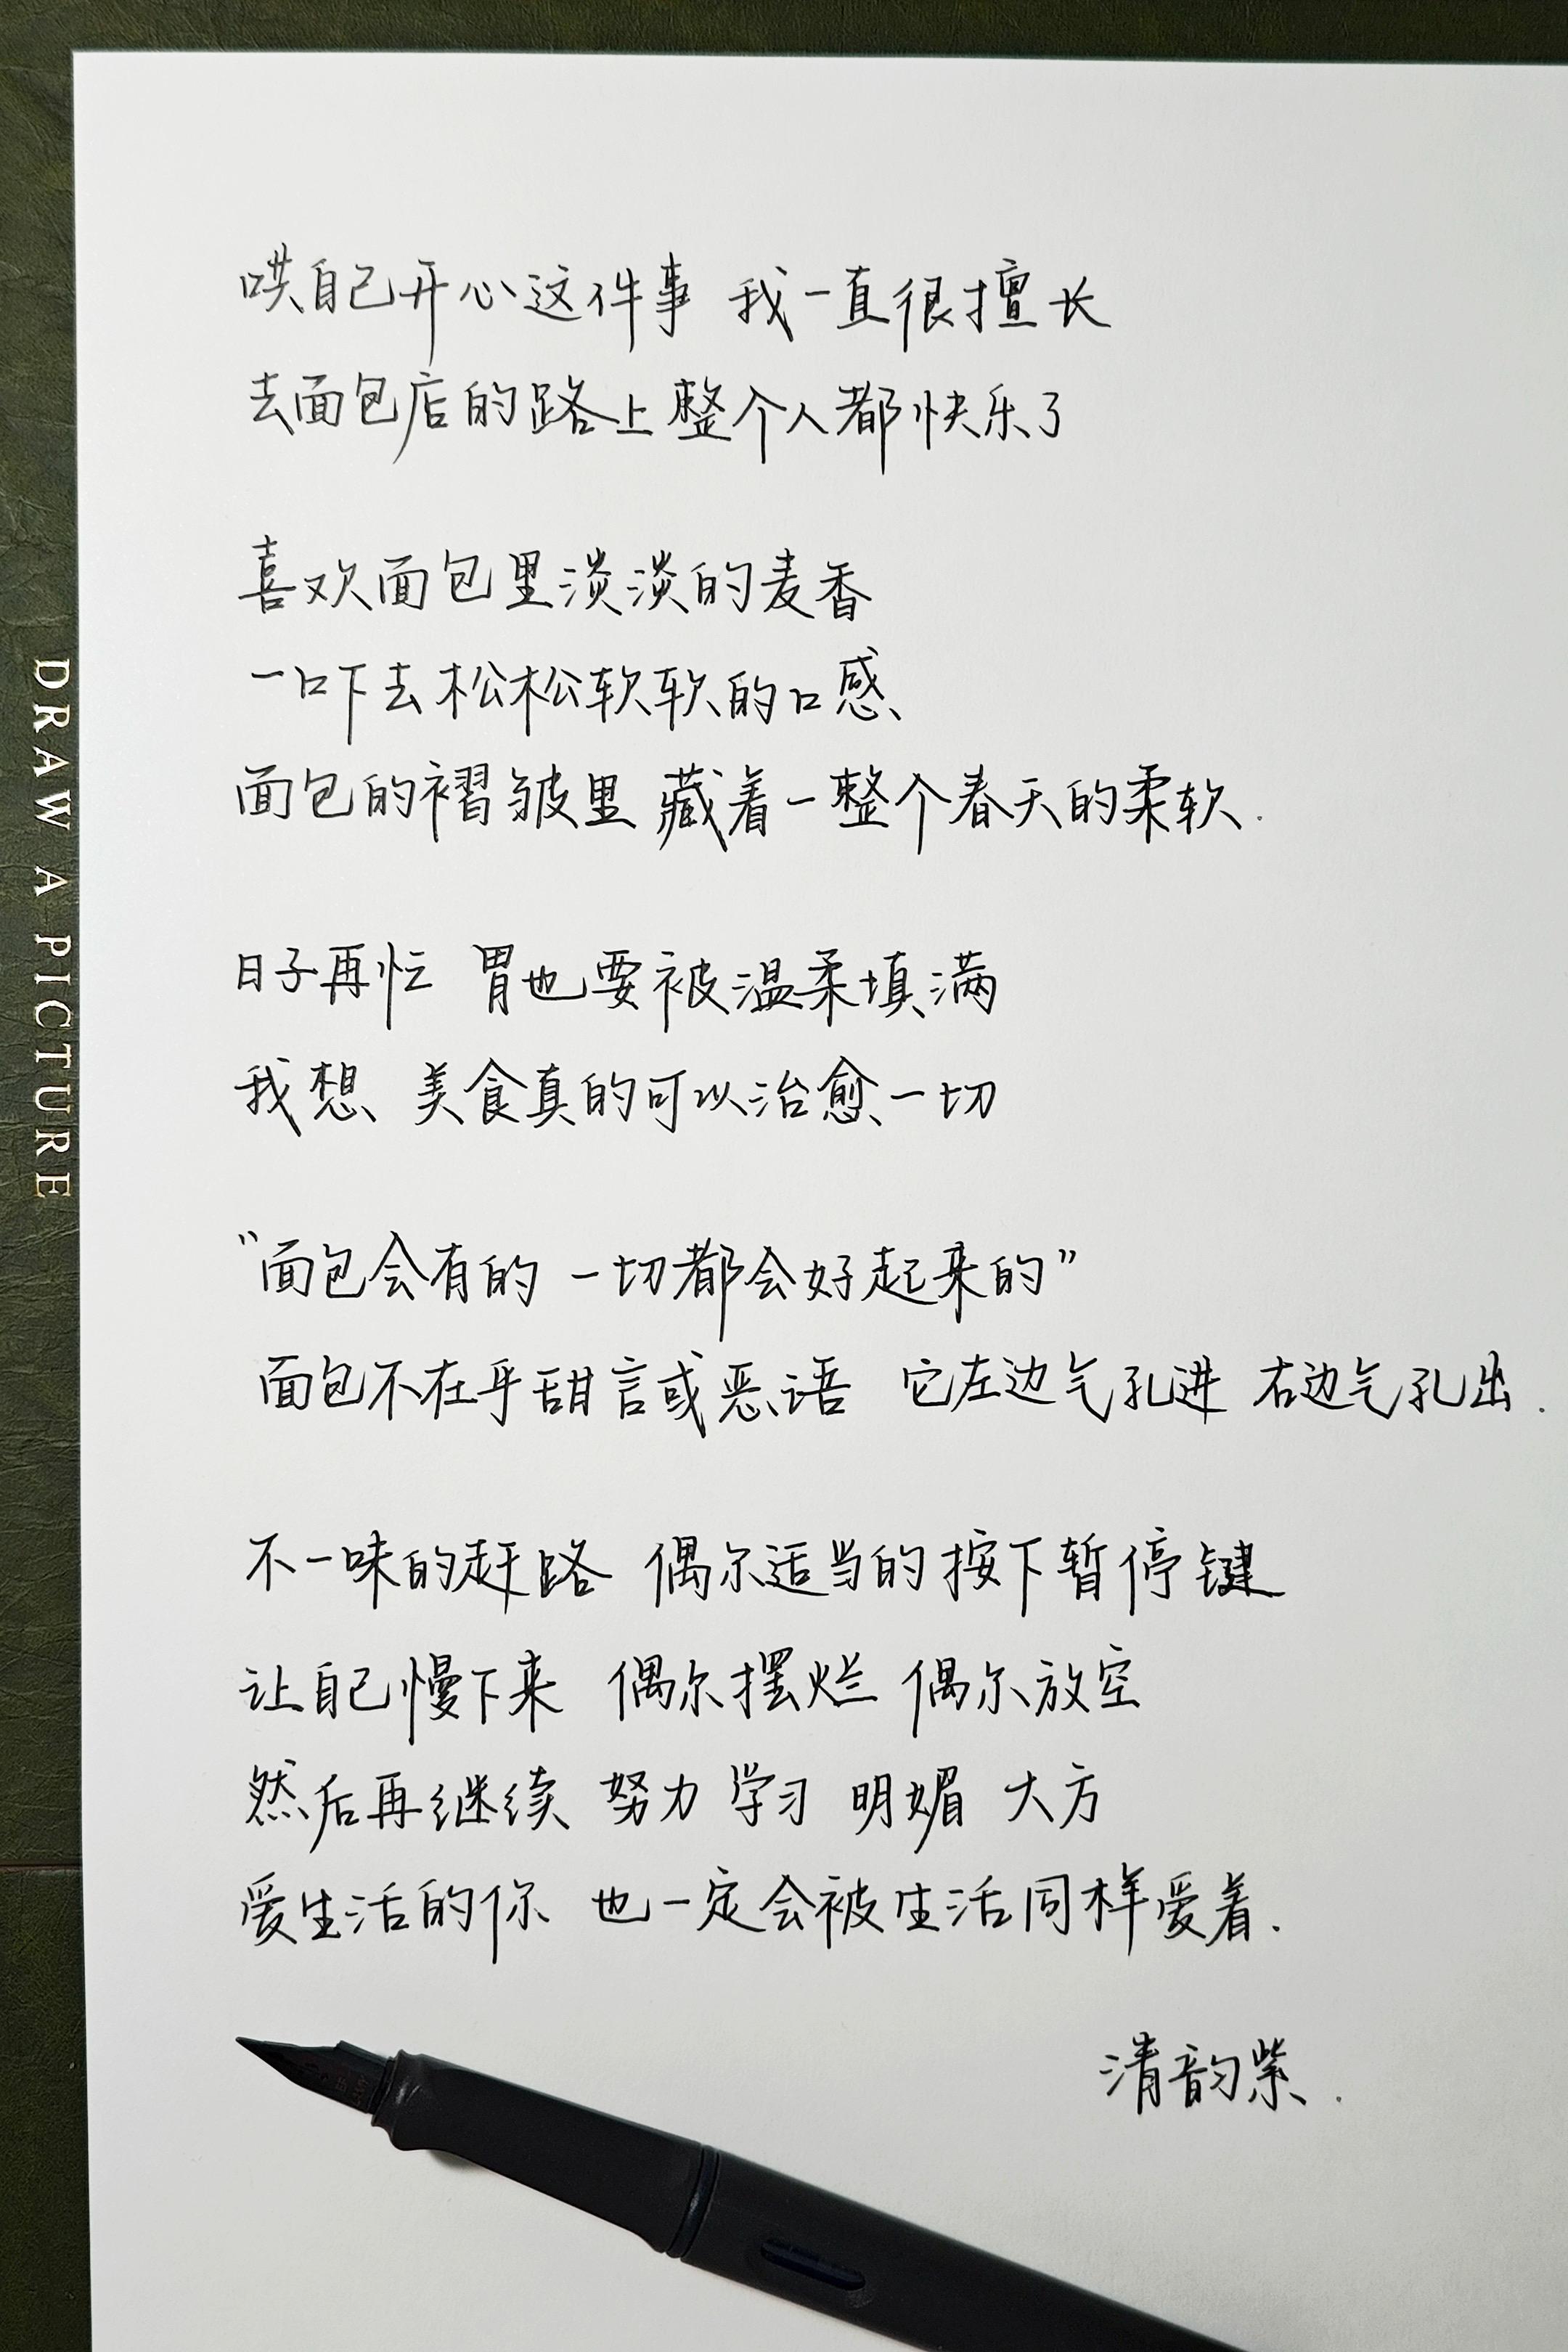 哄自己开心这件事 我一直很擅长
去面包店的路上 整个人都快乐了
喜欢面包里淡淡的麦香
一口下去松松软软的口感
面包的褶皱里 藏着一整个春天的柔软.
日子再忙 胃也要被温柔填满
我想 美食真的可以治愈一切
“面包会有的 一切都会好起来的”
面包不在乎甜言或恶语 它左边气孔进 右边气孔出.
不一味的赶路 偶尔适当的按下暂停键
让自己慢下来 偶尔摆烂 偶尔放空
然后再继续 努力 学习 明媚 大方
爱生活的你 也一定会被生活同样爱着.
清韵紫.
DRAW A PICTURE